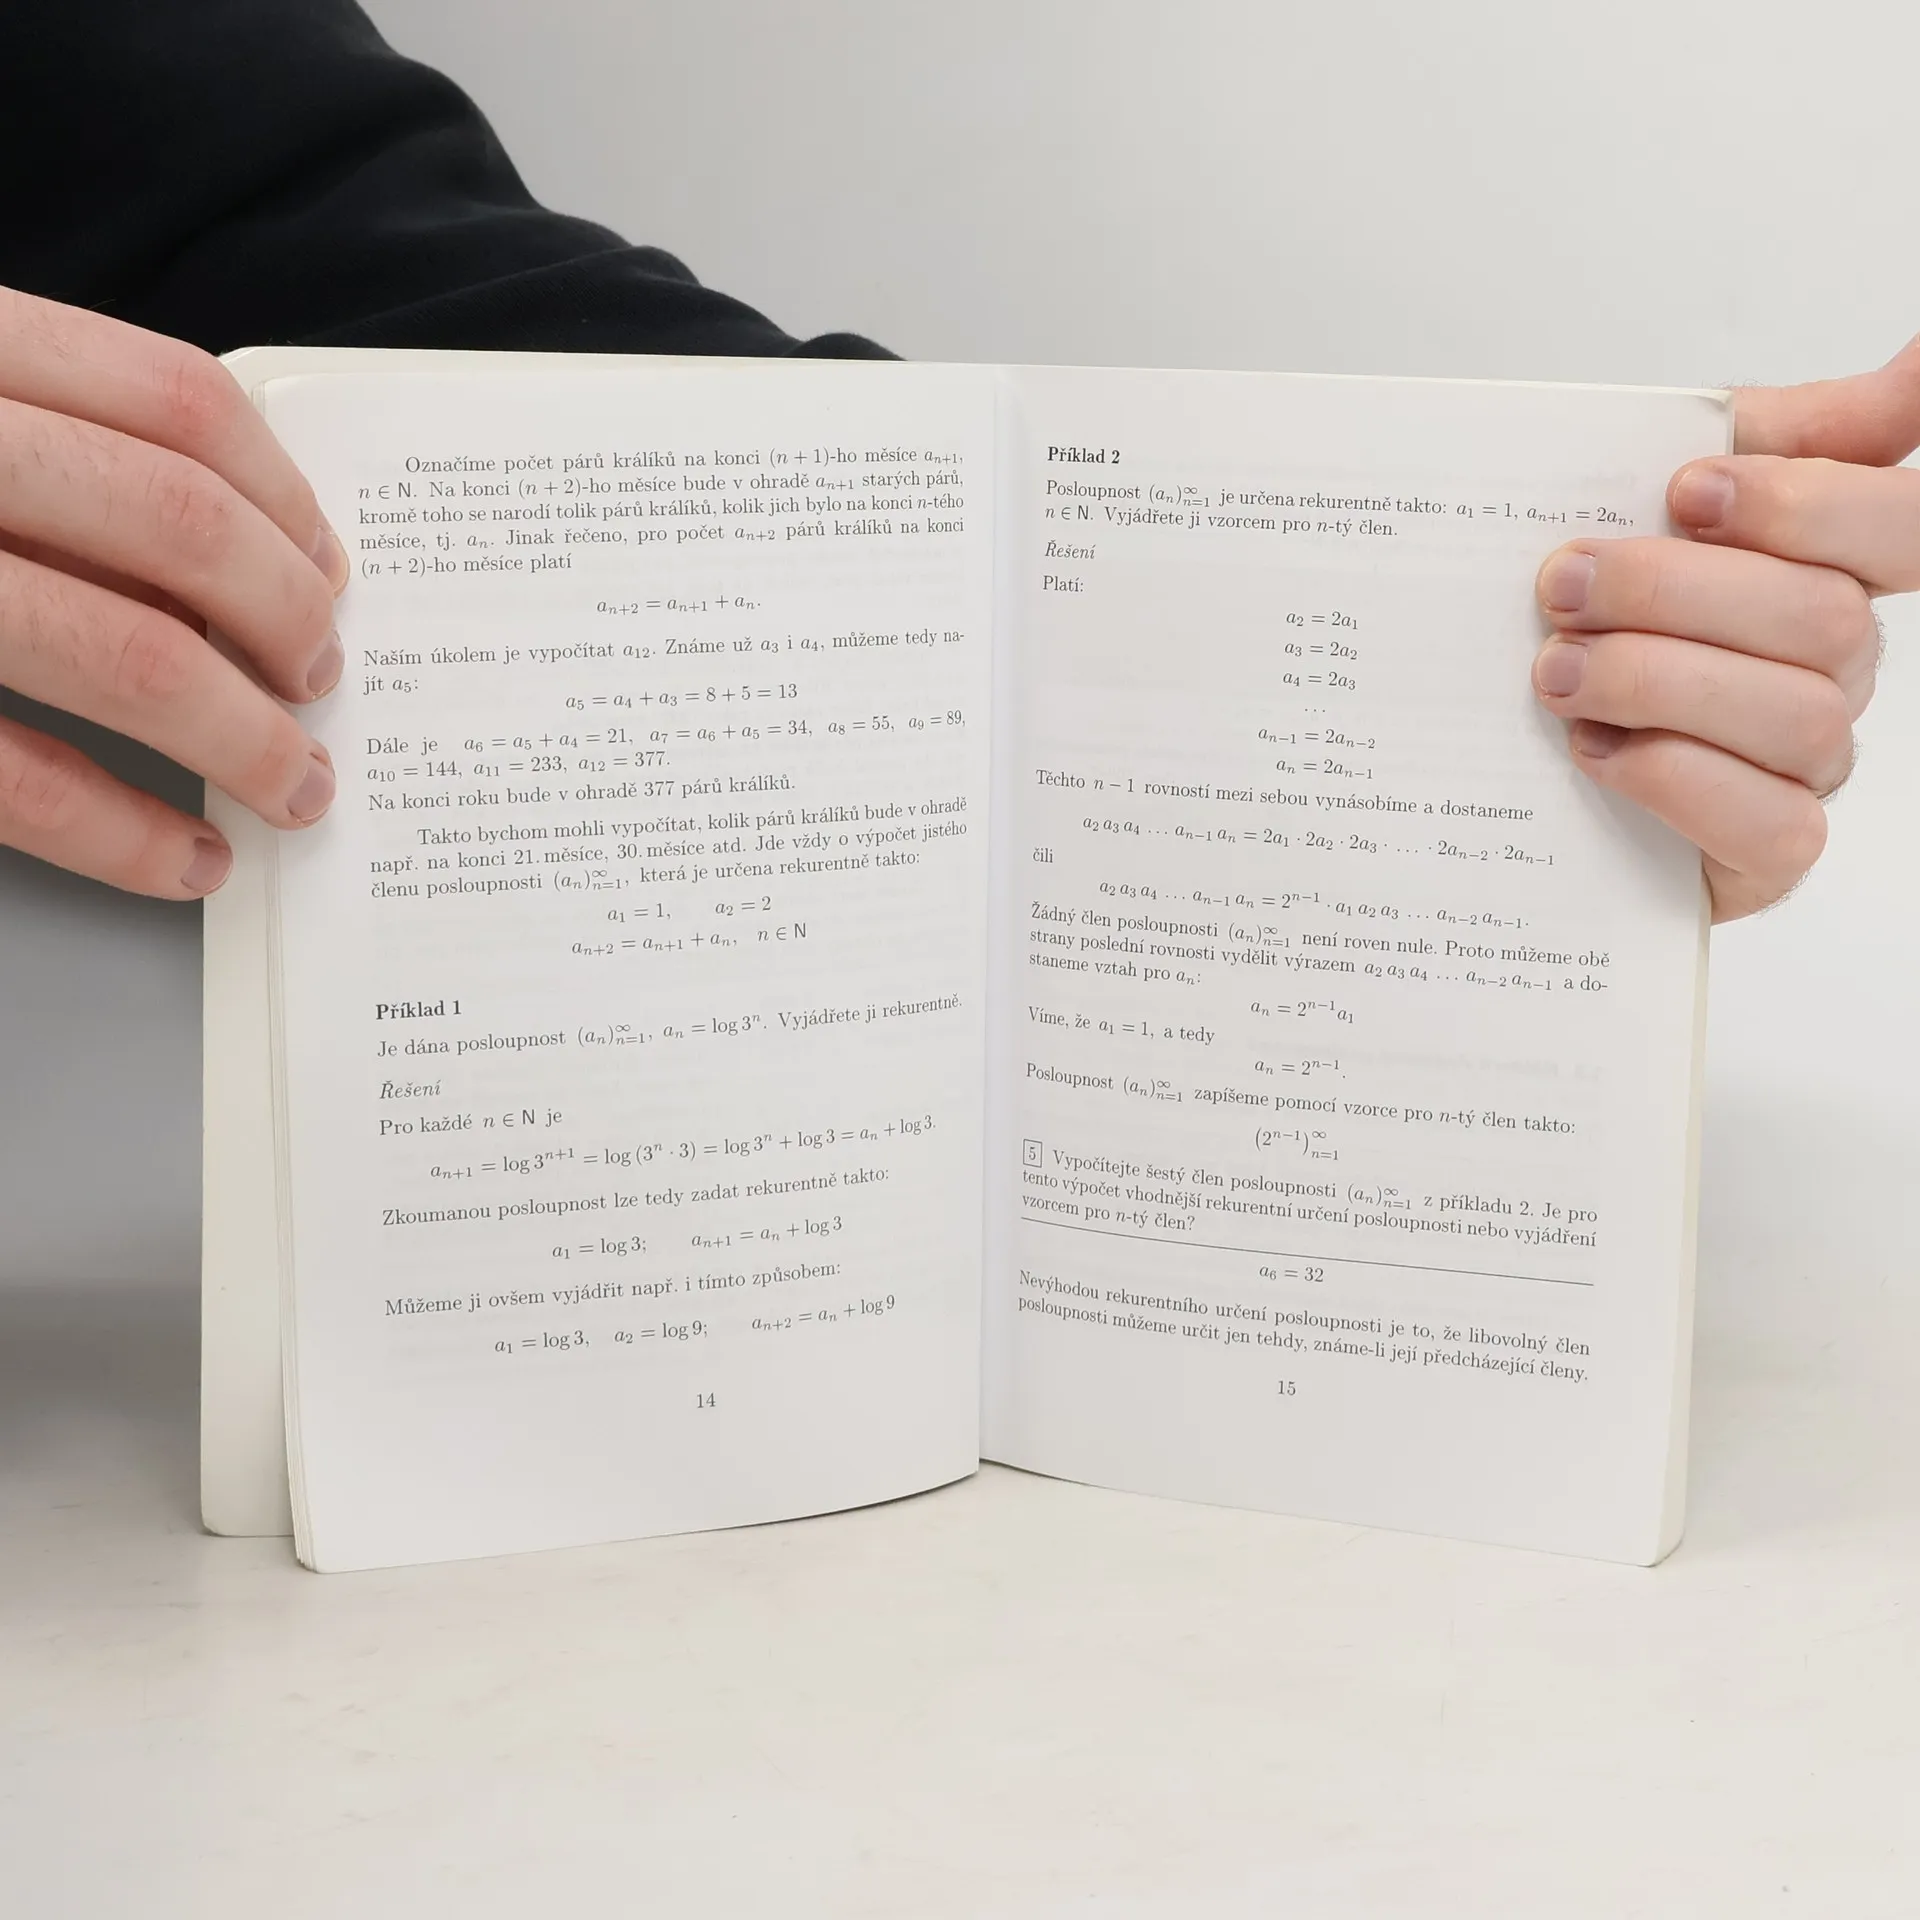 Označíme počet párů králíků na konci (n + 1)-ho měsíce aₙ₊₁,
n ∈ N. Na konci (n + 2)-ho měsíce bude v ohradě aₙ₊₁ starých párů,
kromě toho se narodí tolik párů králíků, kolik jich bylo na konci n-tého
měsíce, tj. aₙ. Jinak řečeno, pro počet aₙ₊₂ párů králíků na konci
(n + 2)-ho měsíce platí
aₙ₊₂ = aₙ₊₁ + aₙ.
Naším úkolem je vypočítat a₁₂. Známe už a₃ i a₄, můžeme tedy na-
jít a₅:
a₅ = a₄ + a₃ = 8 + 5 = 13
Dále je a₆ = a₅ + a₄ = 21, a₇ = a₆ + a₅ = 34, a₈ = 55, a₉ = 89,
a₁₀ = 144, a₁₁ = 233, a₁₂ = 377.
Na konci roku bude v ohradě 377 párů králíků.
Takto bychom mohli vypočítat, kolik párů králíků bude v ohradě
např. na konci 21. měsíce, 30. měsíce atd. Jde vždy o výpočet jistého
členu posloupnosti (aₙ)ₙ₌₁^∞, která je určena rekurentně takto:
a₁ = 1, a₂ = 2
aₙ₊₂ = aₙ₊₁ + aₙ, n ∈ N
Příklad 1
Je dána posloupnost (aₙ)ₙ₌₁^∞, aₙ = log 3ⁿ. Vyjádřete ji rekurentně.
Řešení
Pro každé n ∈ N je
aₙ₊₁ = log 3ⁿ⁺¹ = log (3ⁿ · 3) = log 3ⁿ + log 3 = aₙ + log 3.
Zkoumanou posloupnost lze tedy zadat rekurentně takto:
a₁ = log 3; aₙ₊₁ = aₙ + log 3
Můžeme ji ovšem vyjádřit např. i tímto způsobem:
a₁ = log 3, a₂ = log 9; aₙ₊₂ = aₙ + log 9
14
Příklad 2
Posloupnost (aₙ)ₙ₌₁^∞ je určena rekurentně takto: a₁ = 1, aₙ₊₁ = 2aₙ,
n ∈ N. Vyjádřete ji vzorcem pro n-tý člen.
Řešení
Platí:
a₂ = 2a₁
a₃ = 2a₂
a₄ = 2a₃
...
aₙ₋₁ = 2aₙ₋₂
aₙ = 2aₙ₋₁
Těchto n − 1 rovností mezi sebou vynásobíme a dostaneme
a₂ a₃ a₄ ... aₙ₋₁ aₙ = 2a₁ · 2a₂ · 2a₃ · ... · 2aₙ₋₂ · 2aₙ₋₁
čili
a₂ a₃ a₄ ... aₙ₋₁ aₙ = 2ⁿ⁻¹ · a₁ a₂ a₃ ... aₙ₋₂ aₙ₋₁.
Žádný člen posloupnosti (aₙ)ₙ₌₁^∞ není roven nule. Proto můžeme obě
strany poslední rovnosti vydělit výrazem a₂ a₃ a₄ ... aₙ₋₂ aₙ₋₁ a do-
staneme vztah pro aₙ:
aₙ = 2ⁿ⁻¹a₁
Víme, že a₁ = 1, a tedy
aₙ = 2ⁿ⁻¹.
Posloupnost (aₙ)ₙ₌₁^∞ zapíšeme pomocí vzorce pro n-tý člen takto:
(2ⁿ⁻¹)ₙ₌₁^∞
5 Vypočítejte šestý člen posloupnosti (aₙ)ₙ₌₁^∞ z příkladu 2. Je pro
tento výpočet vhodnější rekurentní určení posloupnosti nebo vyjádření
vzorcem pro n-tý člen?
a₆ = 32
Nevýhodou rekurentního určení posloupnosti je to, že libovolný člen
posloupnosti můžeme určit jen tehdy, známe-li její předcházející členy.
15